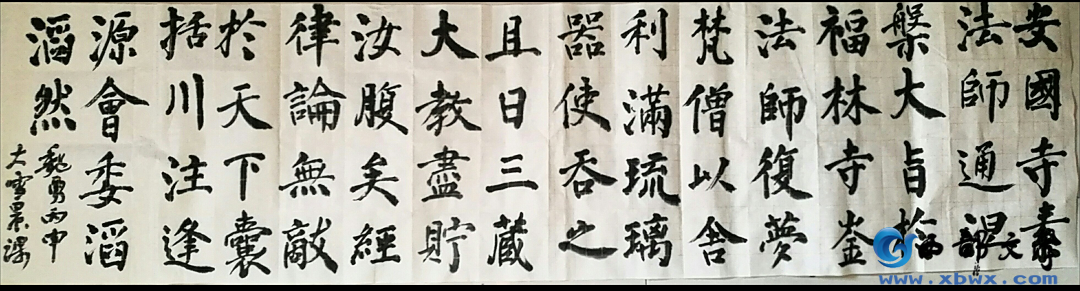 安國寺素
法師通涅
槃大旨扵
福林寺崟
法師復夢
梵僧以舍
利滿琉璃
器使吞之
且曰三藏
大教盡貯
汝腹矣經
律論無敵
扵天下囊
括川注逢
源會委滔
滔然
魏勇丙申
大雪
www.xbwx.com